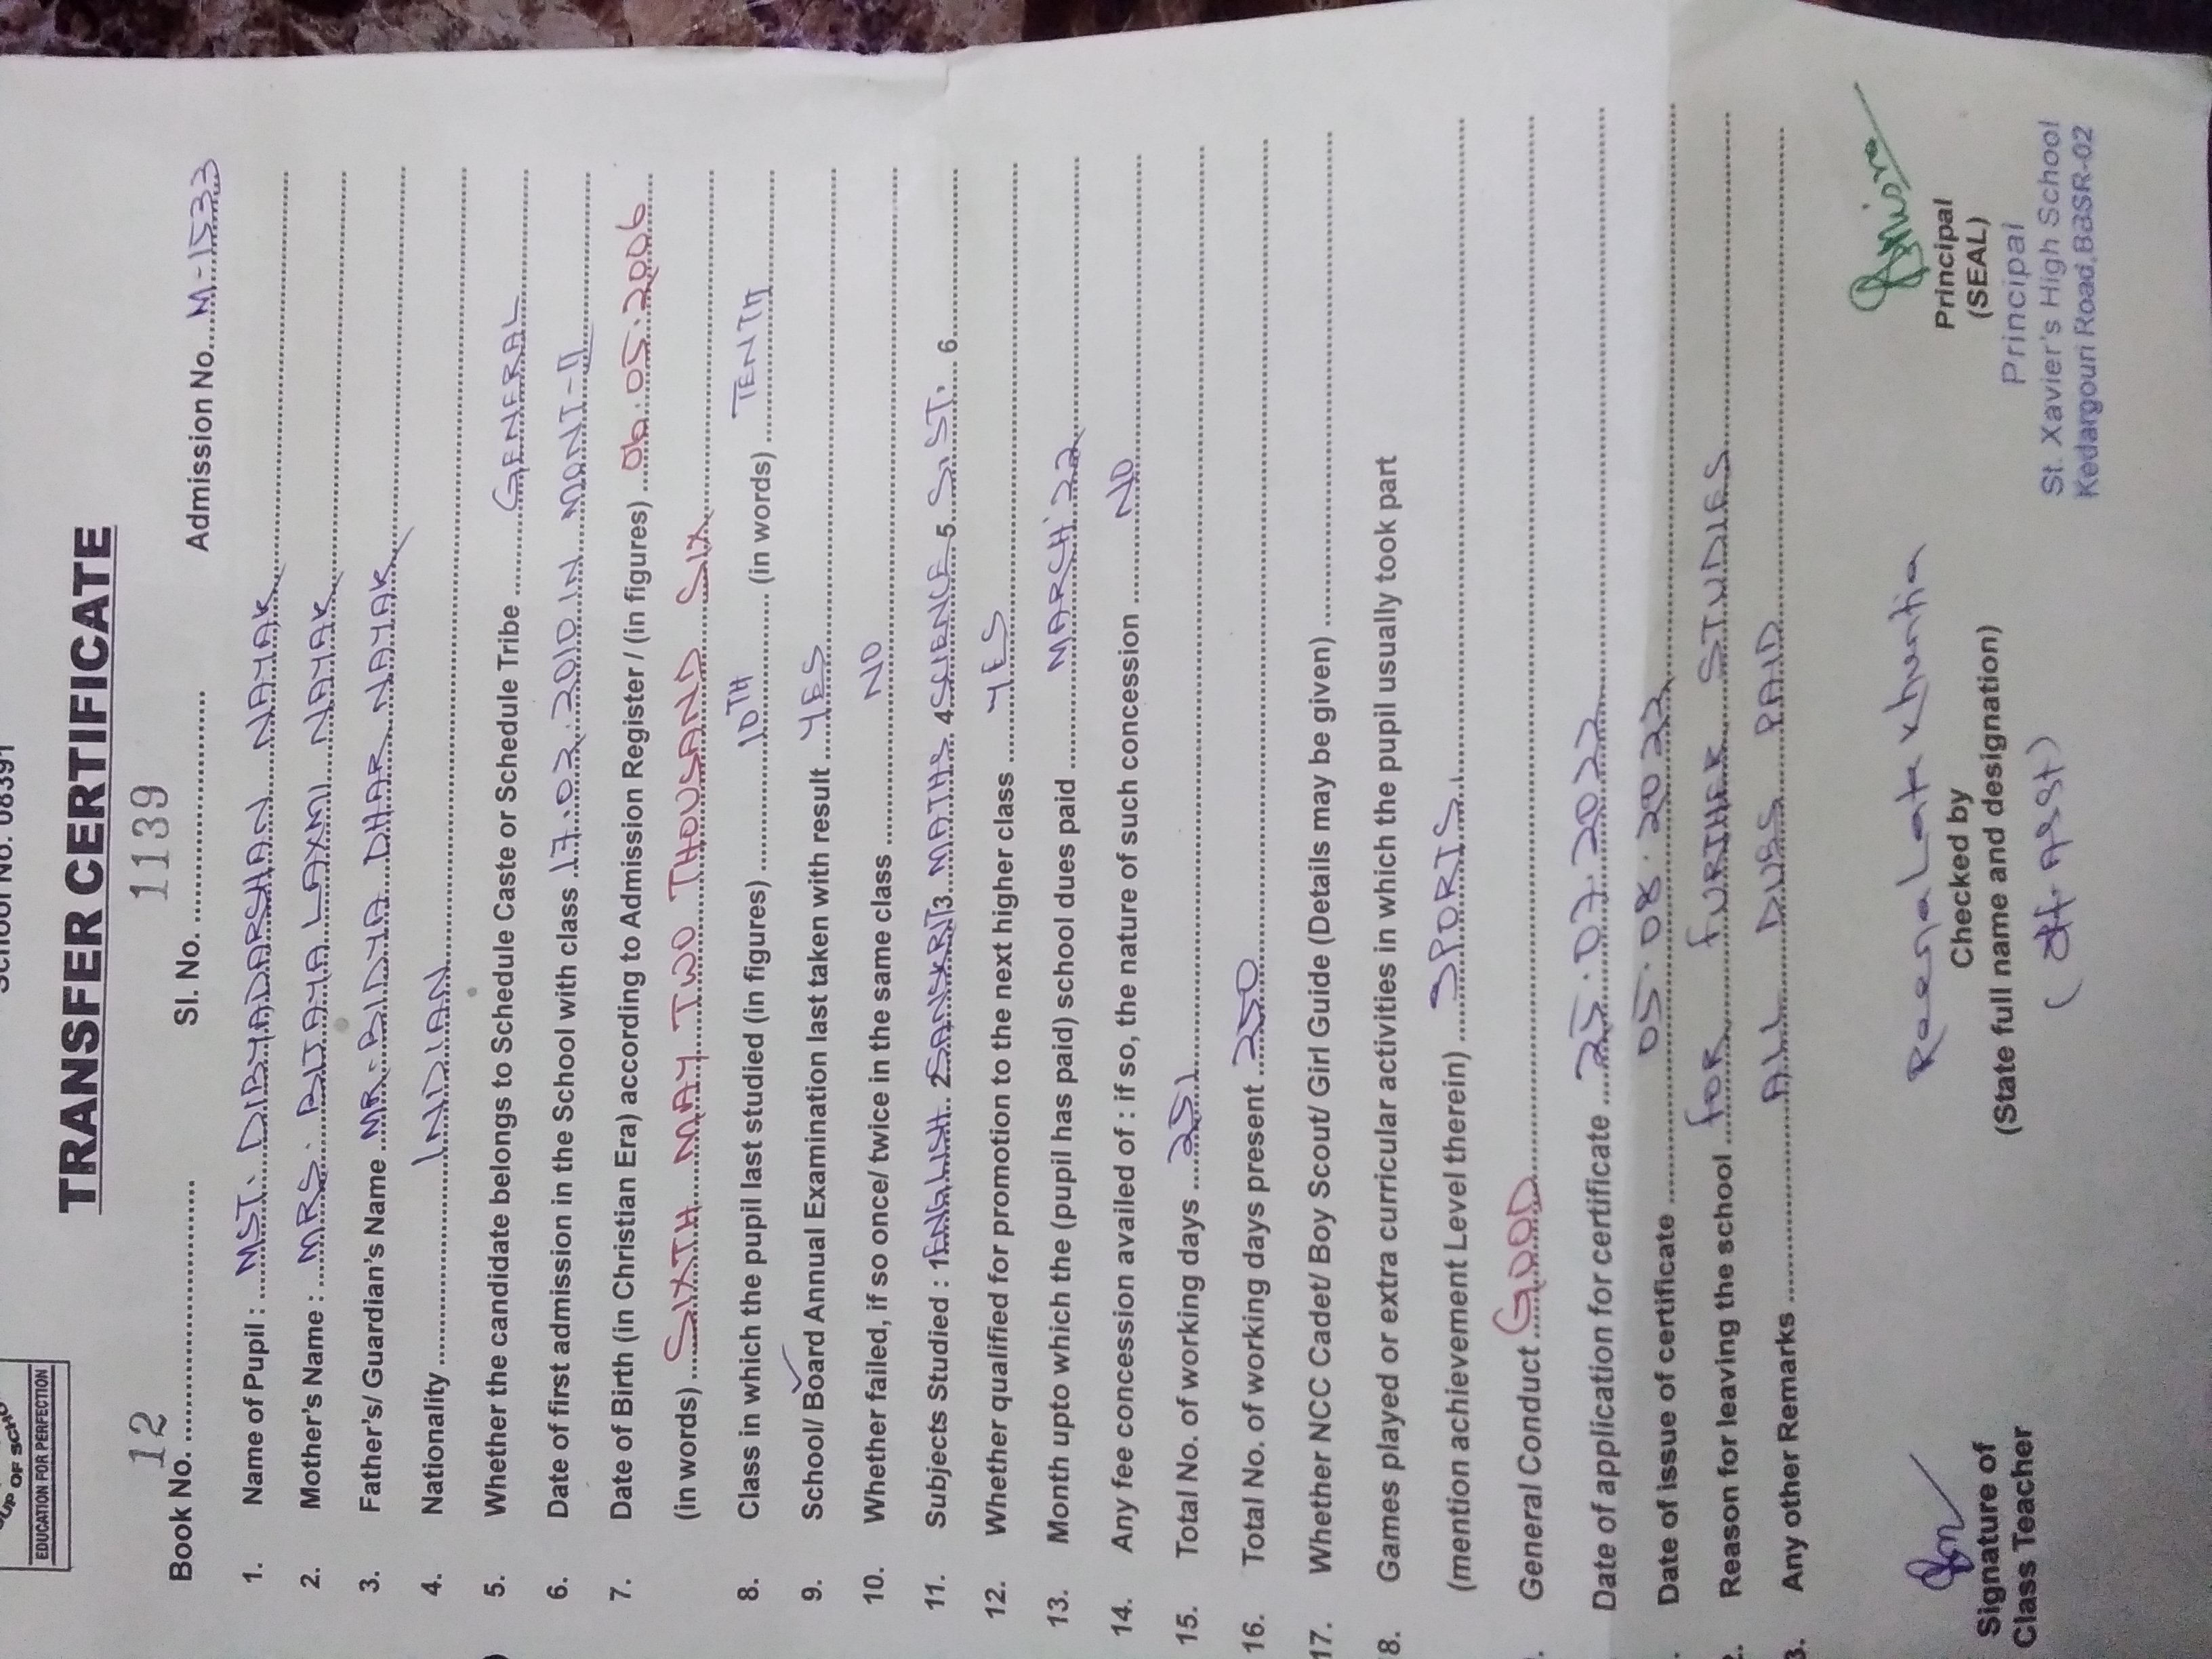 School No. 08391
UP OF SCHO
EDUCATION FOR PERFECTION
TRANSFER CERTIFICATE
Book No. 12 Sl. No. 1139 Admission No. M-1533
1. Name of Pupil : MST. DIBYADARSHAN NAYAK
2. Mother's Name : MRS. BIJAYA LAXMI NAYAK
3. Father's/ Guardian's Name MR. BIDYA DHAR NAYAK
4. Nationality INDIAN
5. Whether the candidate belongs to Schedule Caste or Schedule Tribe GENERAL
6. Date of first admission in the School with class 17.02.2010 IN MONT-II
7. Date of Birth (in Christian Era) according to Admission Register / (in figures) 06.05.2006
(in words) SIXTH MAY TWO THOUSAND SIX
8. Class in which the pupil last studied (in figures) 10TH (in words) TENTH
9. School/ Board Annual Examination last taken with result YES
10. Whether failed, if so once/ twice in the same class NO
11. Subjects Studied : 1 ENGLISH 2 SANSKRIT 3 MATHS 4 SCIENCE 5 S.ST. 6
12. Whether qualified for promotion to the next higher class YES
13. Month upto which the (pupil has paid) school dues paid MARCH'22
14. Any fee concession availed of : if so, the nature of such concession NO
15. Total No. of working days 251
16. Total No. of working days present 250
17. Whether NCC Cadet/ Boy Scout/ Girl Guide (Details may be given)
8. Games played or extra curricular activities in which the pupil usually took part
(mention achievement Level therein) SPORTS
General Conduct GOOD
Date of application for certificate 25.07.2022
Date of issue of certificate 05.08.2022
2. Reason for leaving the school FOR FURTHER STUDIES
3. Any other Remarks ALL DUES PAID
Signature of
Class Teacher
Khuntia
Checked by
(State full name and designation)
Principal
(SEAL)
Principal
St. Xavier's High School
Kedargouri Road, BBSR-02